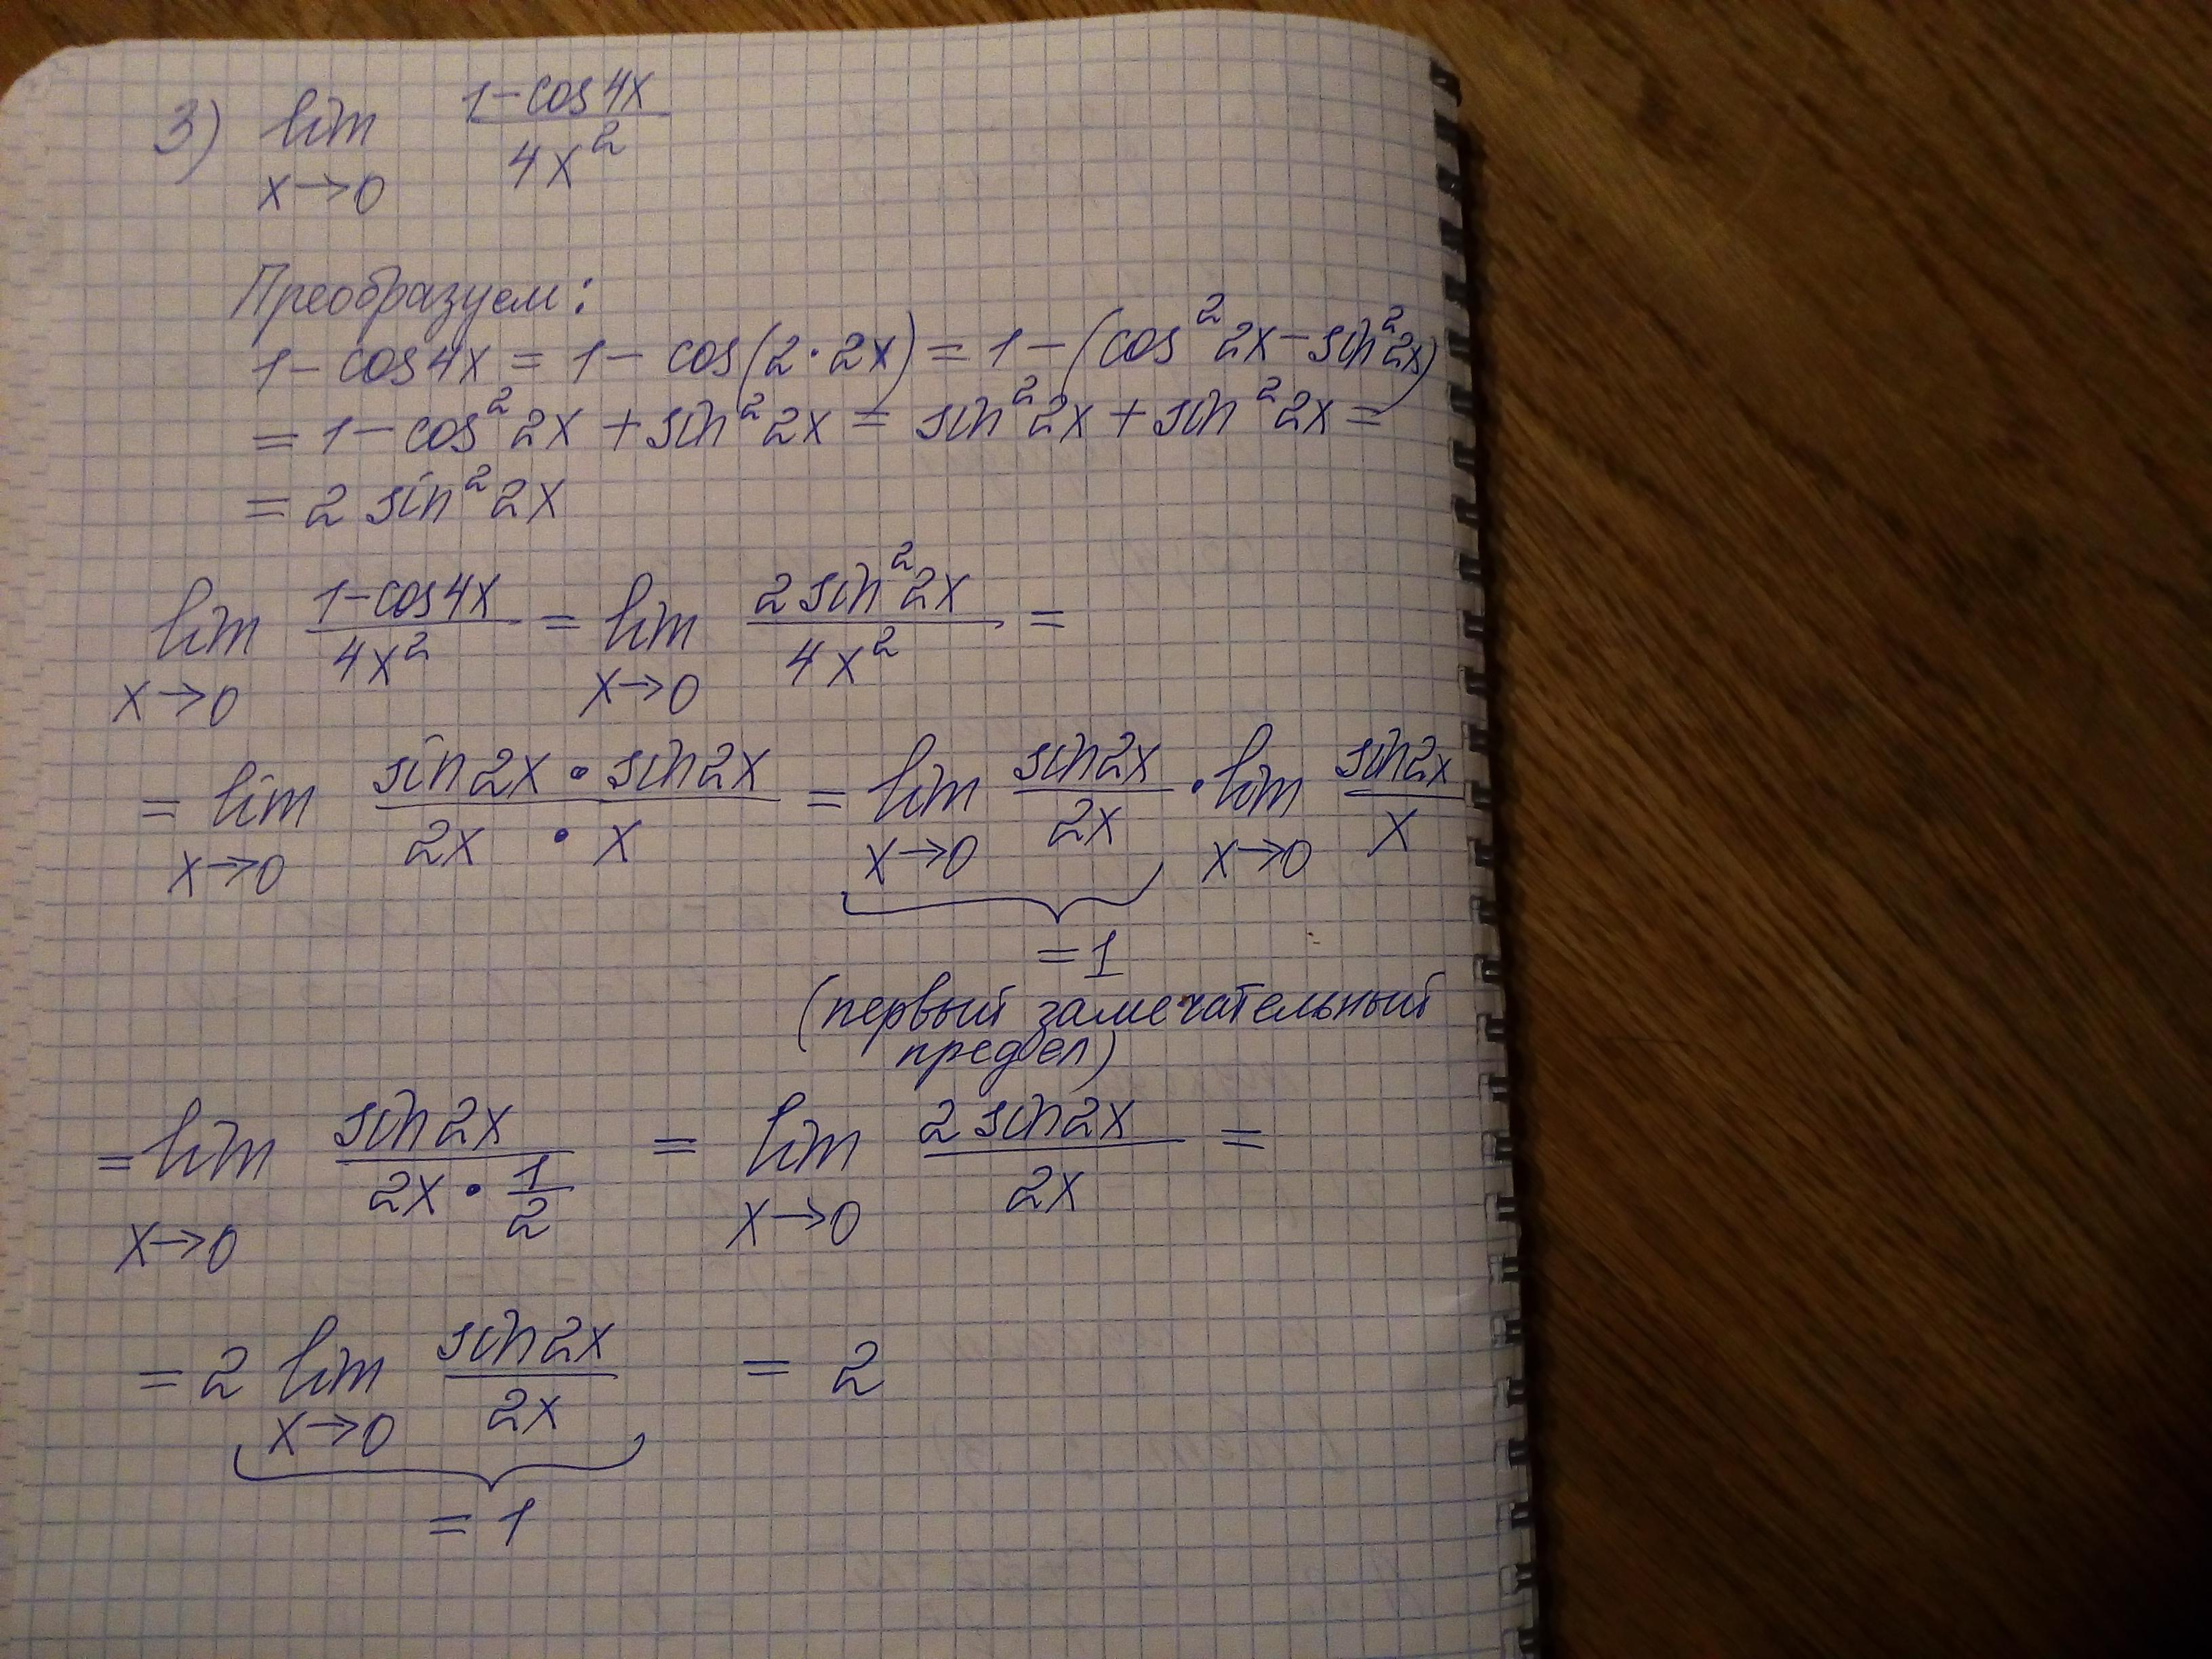 3) lim 1-cos4x / 4x²
x→0
Преобразуем:
1-cos4x = 1-cos(2·2x) = 1-(cos²2x-sin²2x)
= 1-cos²2x + sin²2x = sin²2x + sin²2x =
= 2 sin²2x
lim 1-cos4x / 4x² = lim 2sin²2x / 4x² =
x→0 x→0
= lim sin2x · sin2x / 2x · x = lim sin2x / 2x · lim sin2x / x
x→0 x→0 x→0
= 1
(первый замечательный
предел)
= lim sin2x / 2x · 1/2 = lim 2sin2x / 2x =
x→0 x→0
= 2 lim sin2x / 2x = 2
x→0
= 1